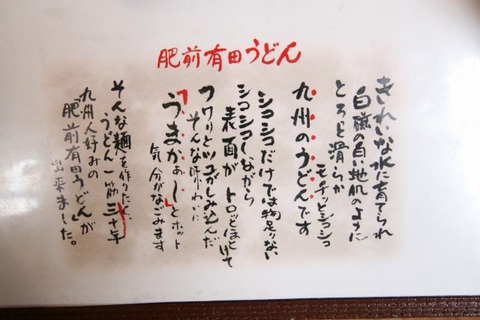 肥前有田うどん
きれいな水に育てられ
白磁の白い地肌のように
とろと滑らか
モチッとシコシコ
九州のうどんです
シコシコだけでは物足りない
シコシコしながら
表面が トロッとほどいて
フワリとツユがしみ込んだ
そんな味わいに
「うまかぁー」とホット
気分がなごみます
そんな麺を作りたく、
うどん一筋三十年
九州人好みの
肥前有田うどんが
出来ました。